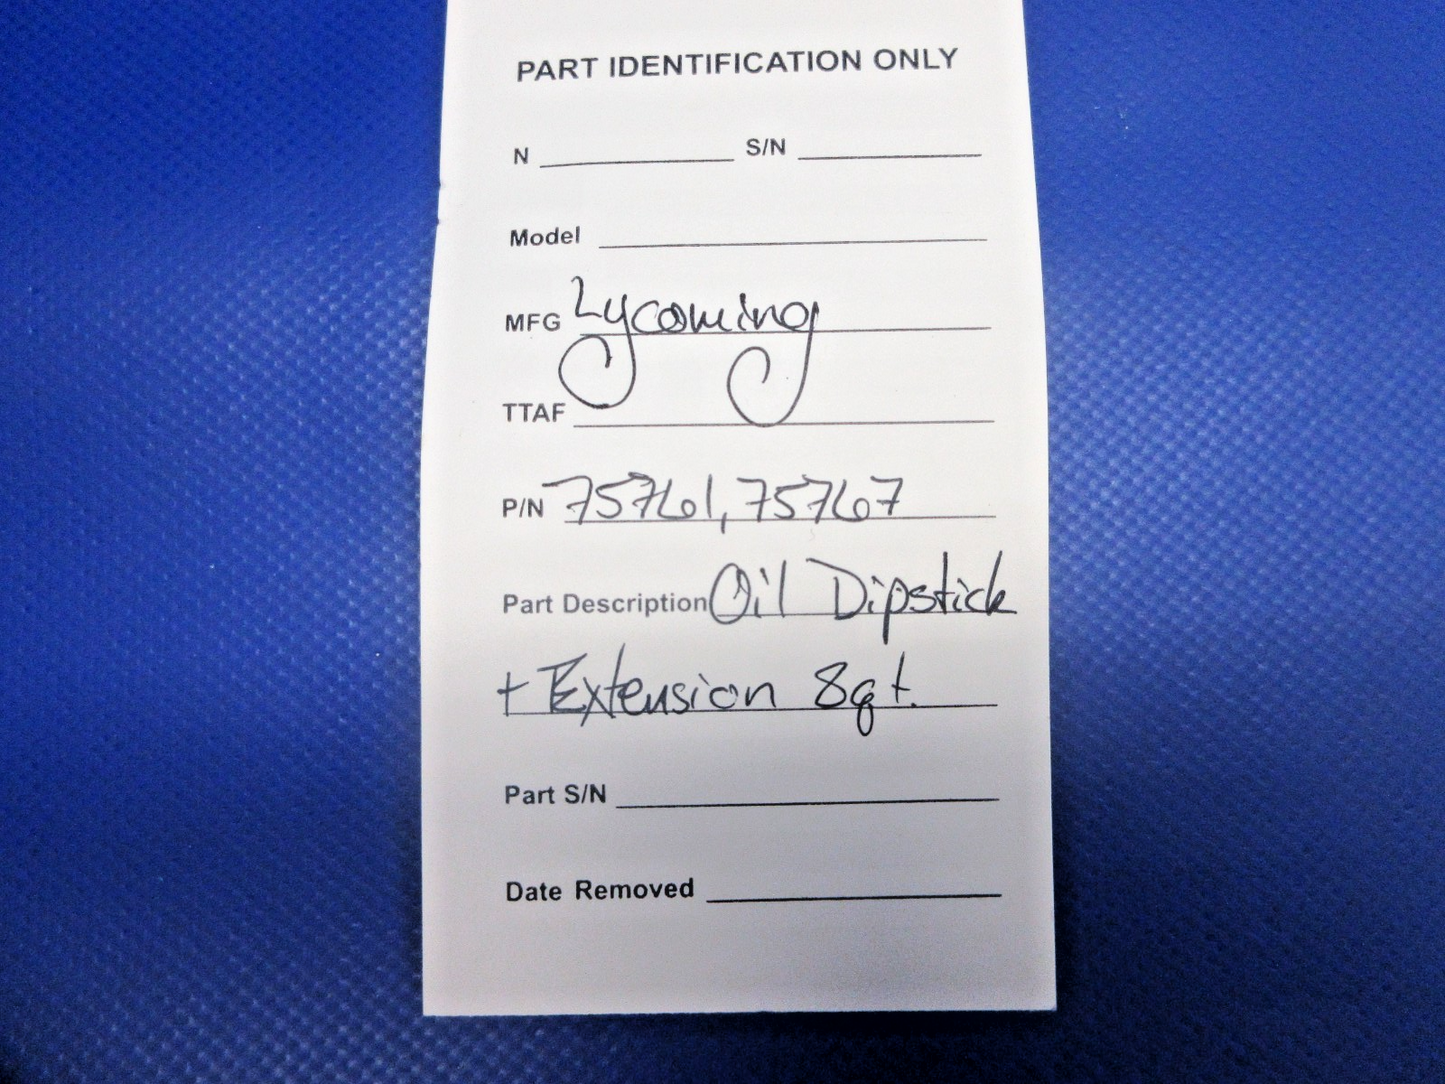 PART IDENTIFICATION ONLY
N S/N
Model
MFG Lycoming
TTAF
P/N 75761, 75767
Part Description Oil Dipstick
+ Extension 8qt.
Part S/N
Date Removed